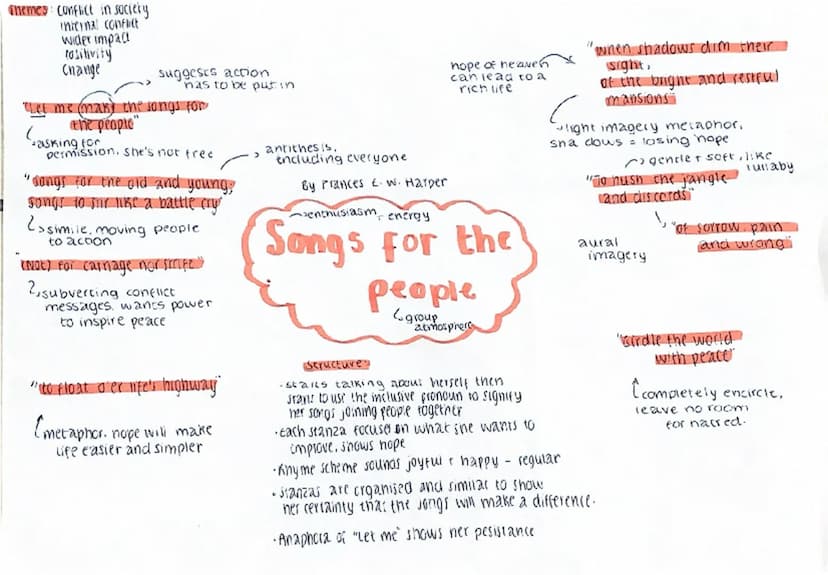 Themes: conflict in society
internal conflict
wider impact
Positivity
Change
suggests action
has to be put in
"Let me make the songs for
the people"
asking for
permission, she's not free
antithesis,
including everyone
"songs for the old and young;
songs to stir like a battle cry"
simile, moving people
to action
"(Not) for carnage nor strife"
subverting conflict
messages, wants power
to inspire peace
"to float o'er life's highway"
metaphor, hope will make
life easier and simpler
By Frances E. W. Harper
enthusiasm, energy
Songs for the
people
group
atmosphere
structure:
· starts talking about herself then
starts to use the inclusive pronoun to signify
her songs joining people together
· each stanza focuses on what she wants to
improve, shows hope
· Rhyme scheme sounds joyful + happy - regular
· Stanzas are organised and similar to show
her certainty that the songs will make a difference.
· Anaphora of "Let me" shows her pesistance
hope of heaven
can lead to a
rich life
"when shadows dim their
sight,
of the bright and restful
mansions"
light imagery metaphor,
shadows = losing hope
gentle + soft, like
lullaby
"To hush the jangle
and discords"
"of sorrow, pain
and wrong"
aural
imagery
"Girdle the world
with peace"
completely encircle,
leave no room
for hatred.